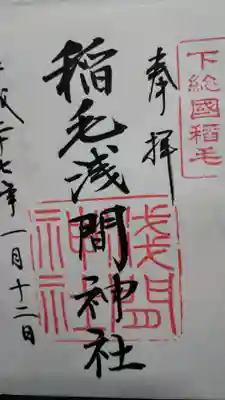 下総國稲毛
奉拝
稲毛浅間神社
浅間神社
平成二十七年一月十二日